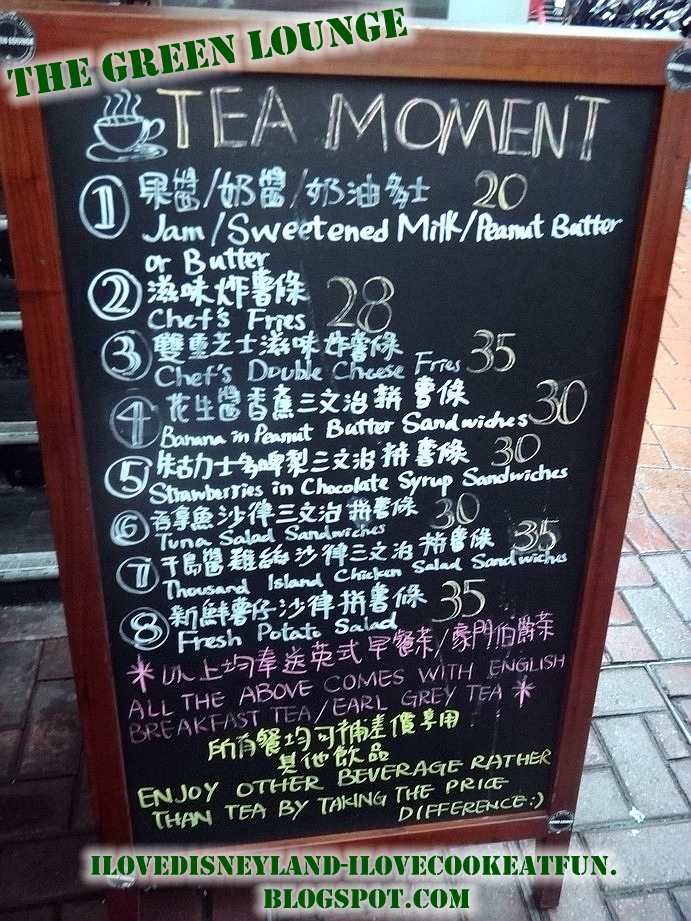 THE GREEN LOUNGE
TEA MOMENT
① 果醬/奶醬/奶油多士 20
Jam/Sweetened Milk/Peanut Butter
or Butter
② 滋味炸薯條 28
Chef's Fries
③ 雙重芝士滋味炸薯條 35
Chef's Double Cheese Fries
④ 花生醬香蕉三文治拼薯條 30
Banana in Peanut Butter Sandwiches
⑤ 朱古力士多啤梨三文治拼薯條 30
Strawberries in Chocolate Syrup Sandwiches
⑥ 吞拿魚沙律三文治拼薯條 30
Tuna Salad Sandwiches
⑦ 千島醬雞絲沙律三文治拼薯條 35
Thousand Island Chicken Salad Sandwiches
⑧ 新鮮薯仔沙律拼薯條 35
Fresh Potato Salad
* 以上均奉送英式早餐茶/豪門伯爵茶
ALL THE ABOVE COMES WITH ENGLISH
BREAKFAST TEA/EARL GREY TEA *
所有餐均可補差價享用
其他飲品
ENJOY OTHER BEVERAGE RATHER
THAN TEA BY TAKING THE PRICE
DIFFERENCE:)
ILOVEDISNEYLAND-ILOVECOOKEATFUN.
BLOGSPOT.COM